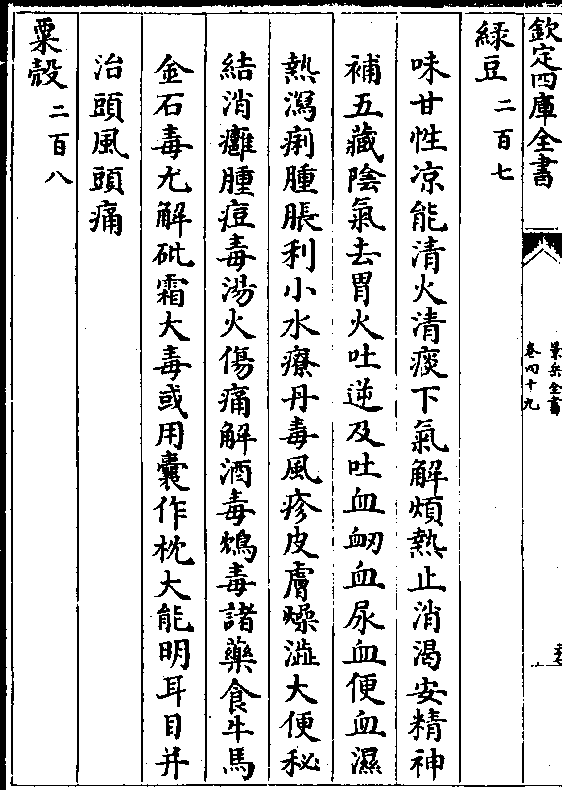 欽定四庫全書
景岳全書
卷四十九
綠豆二百七
味甘性凉能清火清痰下氣解煩熱止消渴安精神
補五藏陰氣去胃火吐逆及吐血衂血尿血便血濕
熱瀉痢腫脹利小水療丹毒風疹皮膚燥澁大便秘
結消癰腫痘毒湯火傷痛解酒毒鴆毒諸藥食牛馬
金石毒尤解砒霜大毒或用囊作枕大能明耳目并
治頭風頭痛
粟殼二百八